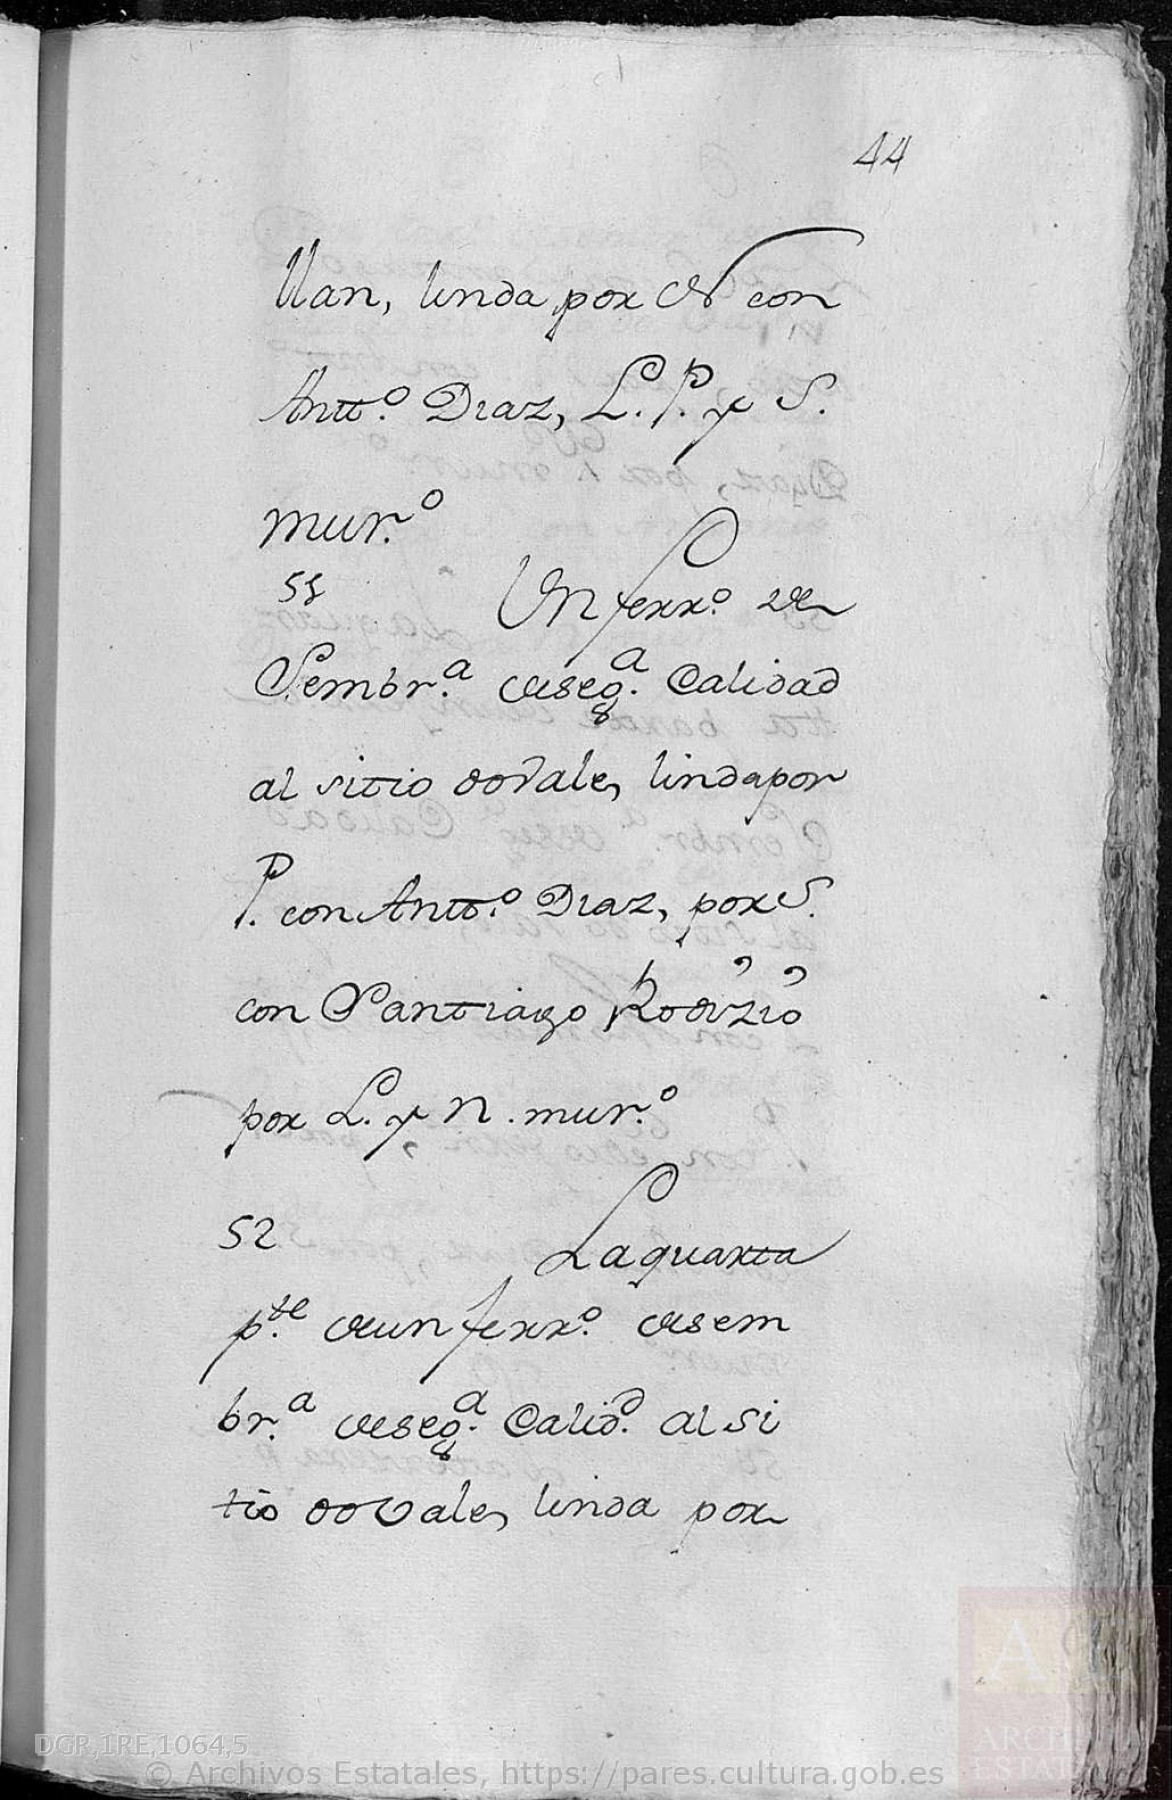 44
llan, linda por N con
Antt.º Diaz, L. P. y S.
mur.º
51 Un ferr.º de
Sembr.ª deseg.ª Calidad
al sitio dovale, lindapor
P. con Antt.º Diaz, por S.
con Santiago
por L. y N. mur.º
52 Laquarta
p.te deun ferr.º desem
br.ª deseg.ª Calid.d al si
tio dovale, linda por
DGR,1RE,1064,5
© Archivos Estatales, https://pares.cultura.gob.es